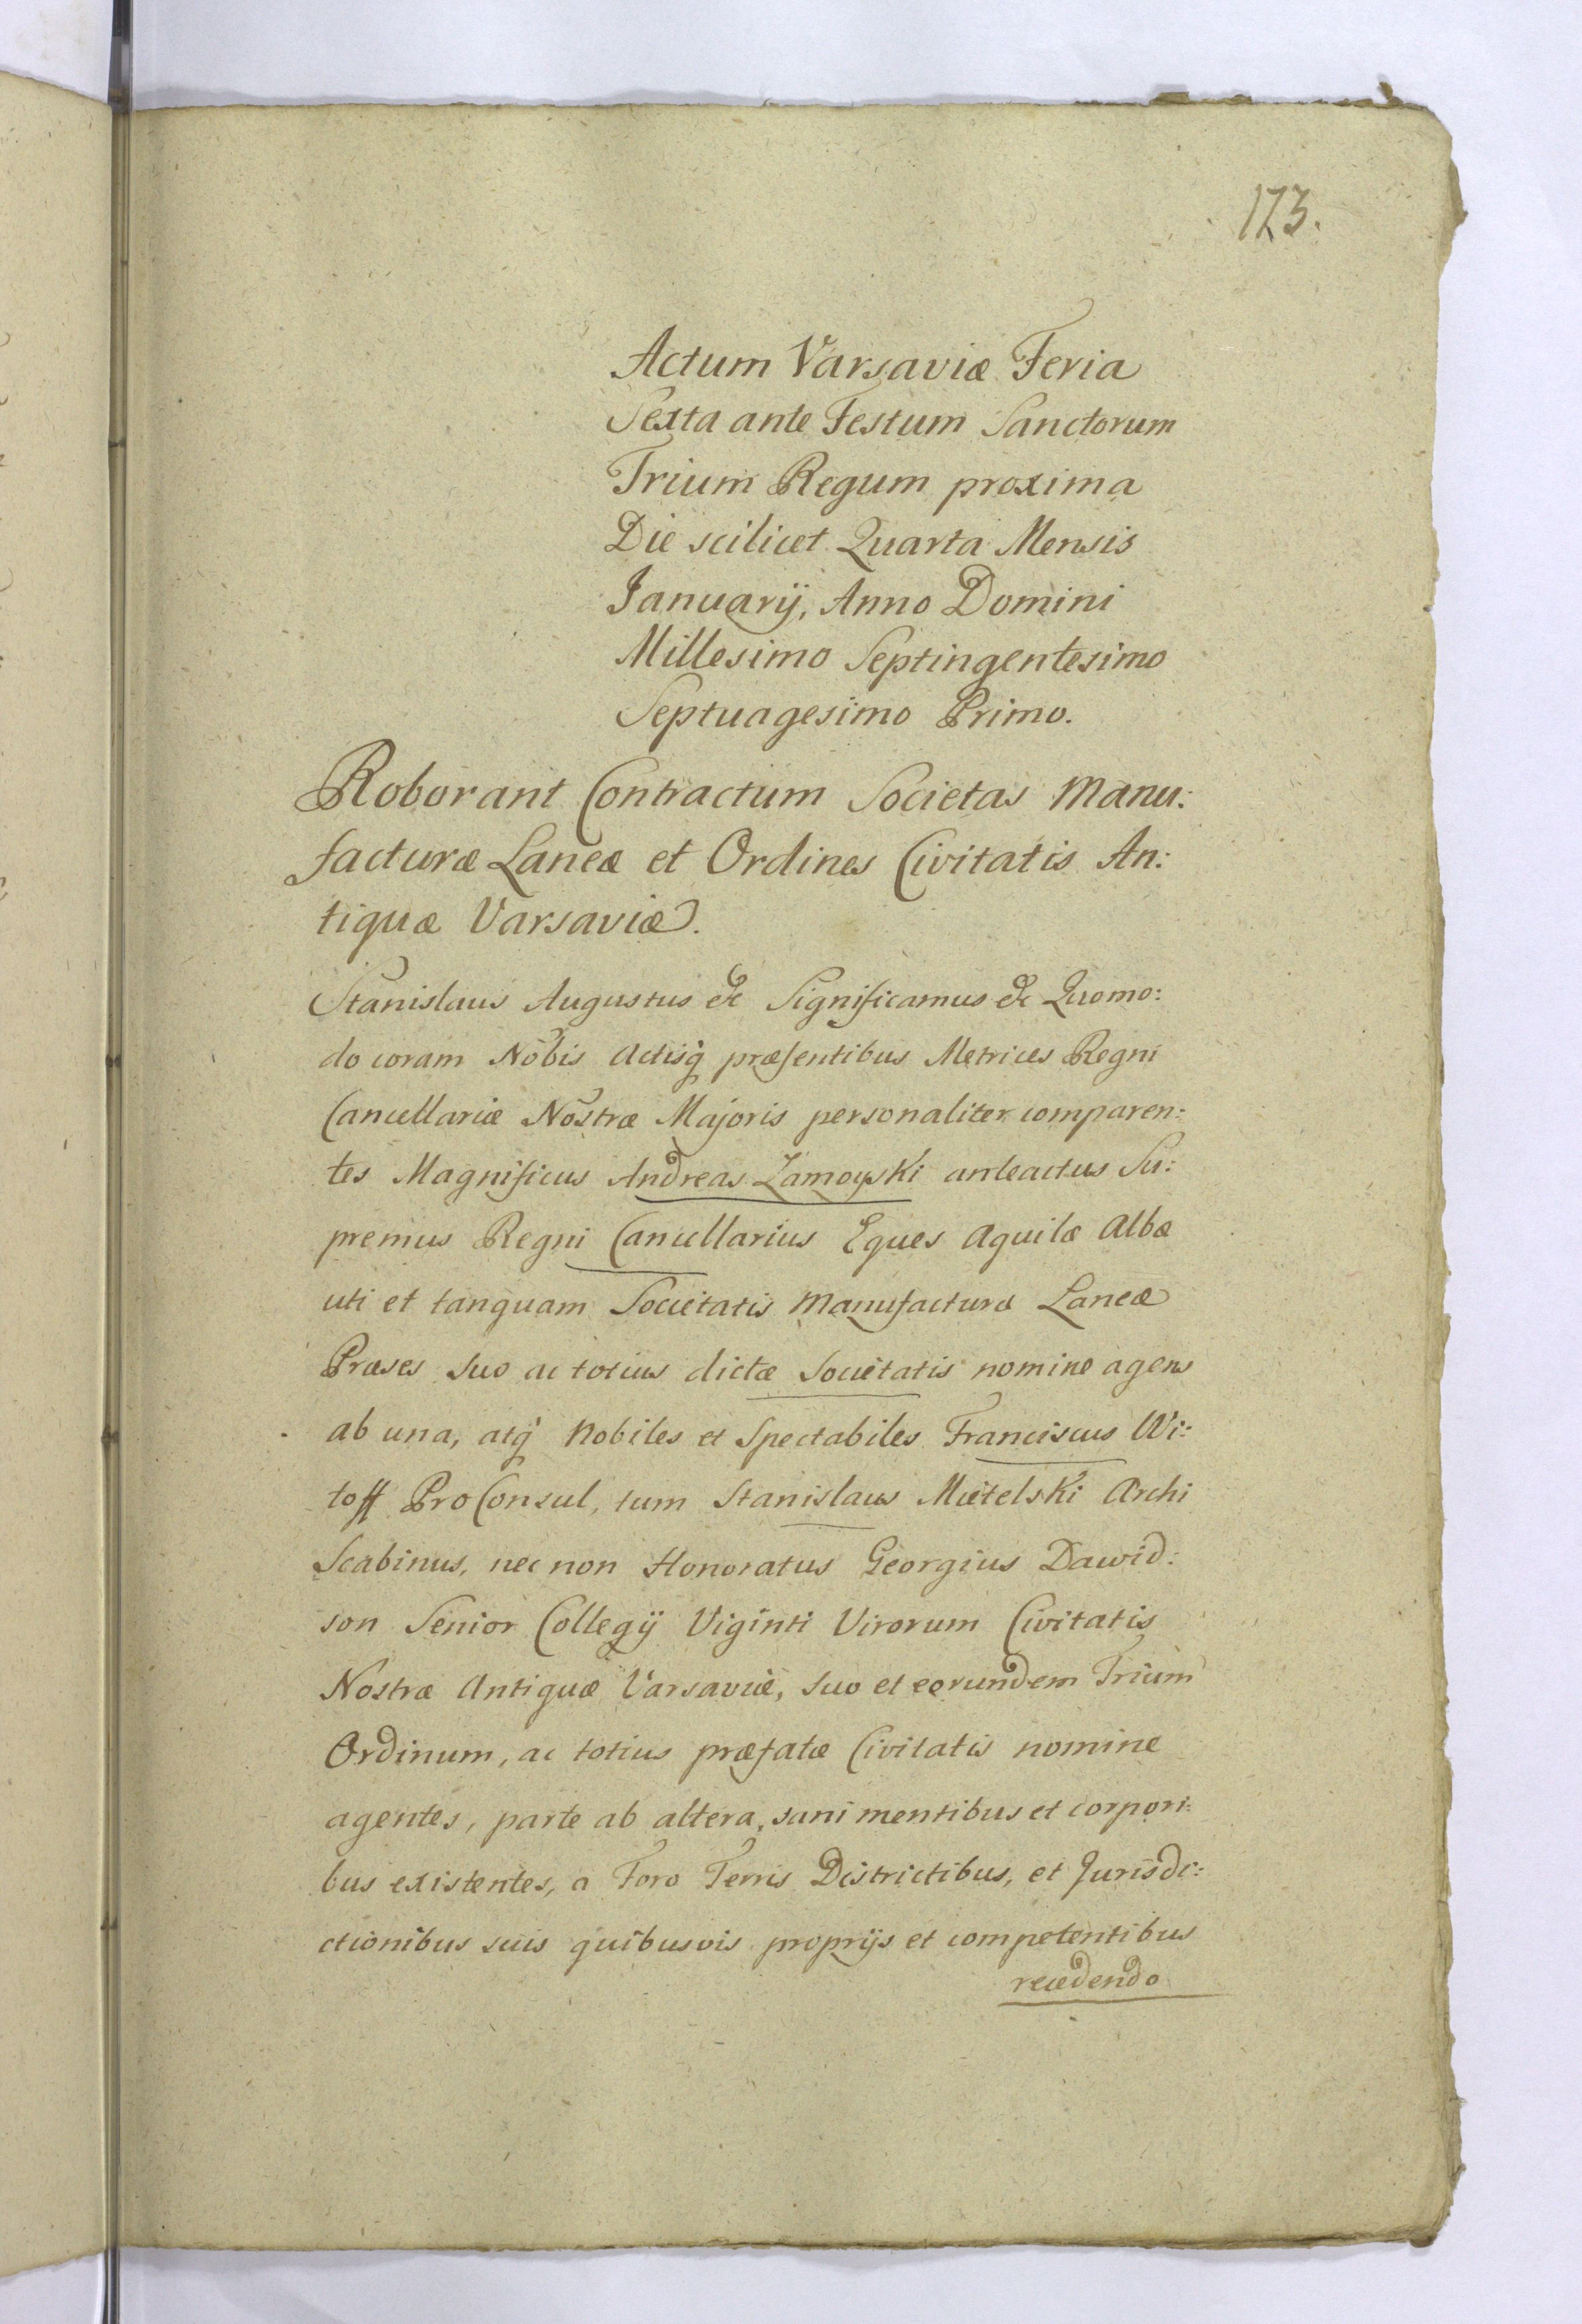 173.
Actum Varsaviæ Feria
Sexta ante Festum Sanctorum
Trium Regum proxima
Die scilicet Quarta Mensis
Januarij, Anno Domini
Millesimo Septingentesimo
Septuagesimo Primo.
Roborant Contractum Societas Manu:
facturæ Laneæ et Ordines Civitatis An:
tiquæ Varsaviæ.
Stanislaus Augustus &c Significamus &c Quomo:
do coram Nobis Actisq præsentibus Metrices Regni
Cancellariæ Nostræ Majoris personaliter comparen:
tes Magnificus Andreas Zamoyski anteactus Su:
premus Regni Cancellarius Eques Aquilæ Albæ
uti et tanquam Societatis Manufacturæ Laneæ
Præses suo ac totius dictæ Societatis nomine agens
ab una, atq Nobiles et Spectabiles Franciscus Wi:
toff ProConsul, tum Stanislaus Mietelski Archi
Scabinus, nec non Honoratus Georgius Dawid:
son Senior Collegij Viginti Virorum Civitatis
Nostræ Antiquæ Varsaviæ, suo et eorundem Trium
Ordinum, ac totius præfatæ Civitatis nomine
agentes, parte ab altera, sani mentibus et corpori:
bus existentes, a Foro Terris Districtibus, et Jurisdi:
ctionibus suis quibusvis proprijs et competentibus
recedendo